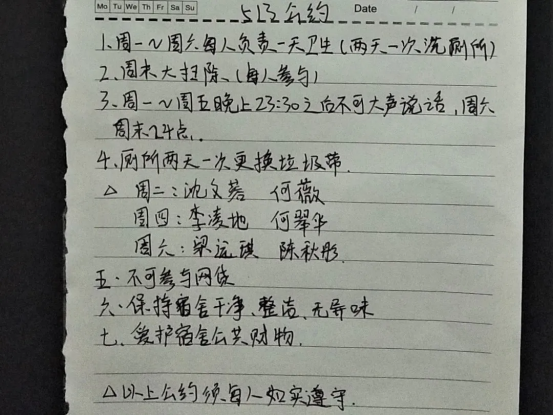 Mo Tu We Th Fr Sa Su
513公约
Date / /
1、周一~周六每人负责一天卫生(两天一次洗厕所)
2、周末大扫除、(每人参与)
3、周一~周五晚上23:30之后不可大声说话,周六
周末24点.
4、厕所两天一次更换垃圾带.
△ 周二:沈文蓉 何薇
周四:李凌地 何翠华
周六:梁远琪 陈秋彤
五、不可参与网贷
六、保持宿舍干净、整洁、无异味
七、爱护宿舍公共财物.
△以上公约须每人如实遵守.